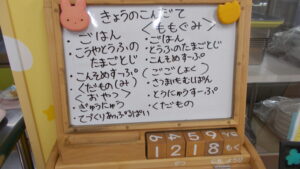 きょうのこんだて
・ごはん
・こうやとうふの
たまごとじ
・こんそめすーぷ
・くだもの(み)
〈おやつ〉
・ぎゅうにゅう
・てづくりあっぷるぱい
〈ももぐみ〉
・ごはん
・とうふのたまごとじ
・こんそめすーぷ
〈ごごしょく〉
・さつまいもむしぱん
・とうにゅうすーぷ
・くだもの
1 2 1 8 もく